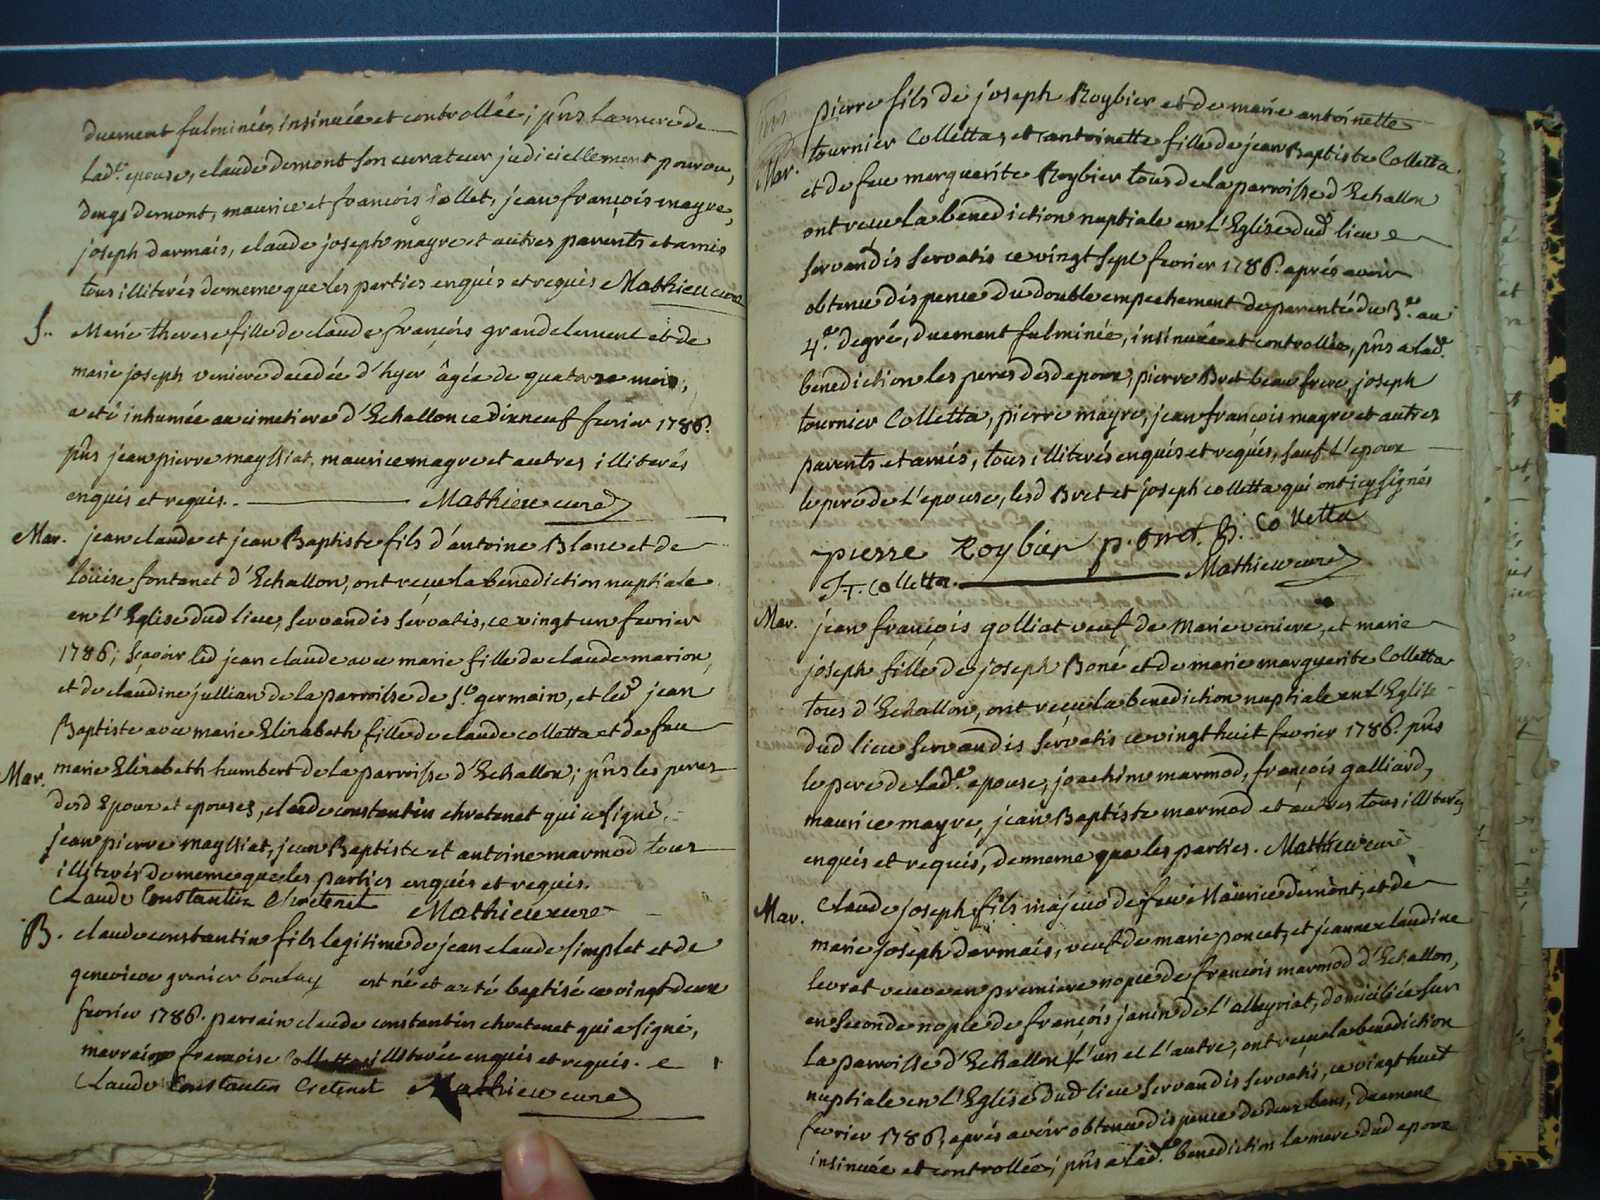 duement fulminée, insinuée et controllée; pñs la mere de
lad.e epouse, claude demont son curateur judiciellement pourvu,
demont, maurice et françois jollet, jean françois mayre,
joseph darmais, claude joseph mayre et autres parents et amis
tous illiterés de meme que les parties enquis et requis Mathieu curé
S.. Marie therese fille de claude françois grandclement et de
marie joseph veniere decedée d'hyer âgée de quatorze mois,
a eté inhumée au cimetiere d'Echallon ce dixneuf fevrier 1786.
pñs jean pierre mayssiat, maurice magre et autres illiterés
enquis et requis. Mathieu curé
Mar. jean claude et jean Baptiste fils d'antoine Blanc et de
Loüise fontanet d'Echallon, ont reçu la benediction nuptiale
en l'Eglise dud lieu, servandis servatis, ce vingt un fevrier
1786; sçavoir led jean claude avec marie fille de claude marion
et de claudine jullian de la parroisse de St. germain, et led jean
Baptiste avec marie Elizabeth fille de claude colletta et de feu
Mar. marie Elizabeth humbert de la parroisse d'Echallon; pñs les peres
desd Epoux et epouses, claude constantin chretenet qui a signé,
jean pierre mayssiat, jean Baptiste et antoine marmod tous
illiterés de meme que les parties enquis et requis.
Claude Constantin Chretenet Mathieu curé
B. claude constantin fils legitime de jean claude simplet et de
genevieve grenier boulay est né et a eté baptisé ce vingt deux
fevrier 1786. parrain claude constantin chretenet qui a signé,
marraine francoise Colletta illiterée enquis et requis.
Claude Constantin Cretenet Mathieu curé
pierre fils de joseph Roybier et de marie antoinette
Mar. tournier Colletta, et antoinette fille de jean Baptiste Colletta
et de feue marguerite Roybier tous de la parroisse d'Echallon
ont reçu la benediction nuptiale en L'Eglise dud lieu
servandis servatis ce vingt sept fevrier 1786. aprés avoir
obtenu dispence du double empechement de parenté du 3.e au
4.e degré, duement fulminée, insinuée et controllée, pñs a lad.
benediction les peres desd epoux, pierre Bret beau frere, joseph
tournier Colletta, pierre mayre, jean françois magre et autres
parents et amis, tous illiterés enquis et requis, sauf L'epoux
le pere de L'epouse, lesd Bret et joseph colletta qui ont icy signés
pierre Roybier p. bret. B. Colletta
J. T. Colletta. Mathieu curé
Mar. jean françois golliat veuf de Marie veniere, et marie
joseph fille de joseph Boné et de marie marguerite Colletta
tous d'Echallon, ont reçu la benediction nuptiale en L'Eglise
dud lieu servandis servatis ce vingt huit fevrier 1786. pñs
le pere de lad.e epouse, joachim marmod, françois galliard,
maurice mayre, jean Baptiste marmod et autres tous illiterés
enquis et requis, de meme que les parties. Mathieu curé
Mar. Claude joseph fils majeur de feu Maurice demont, et de
marie joseph darmais, veuf de marie poncet, et jeanne claudine
levrat veuve en premiere nopce de françois marmod d'Echallon,
en seconde nopce de françois janin de L'alleyriat, domiciliée sur
la parroisse d'Echallon L'un et L'autre, ont reçu la benediction
nuptiale en L'Eglise dud lieu servandis servatis, ce vingt huit
fevrier 1786, aprés avoir obtenu dispence de deux bans, duement
insinuée et controllée; pñs a lad.e benediction la mere dud epoux